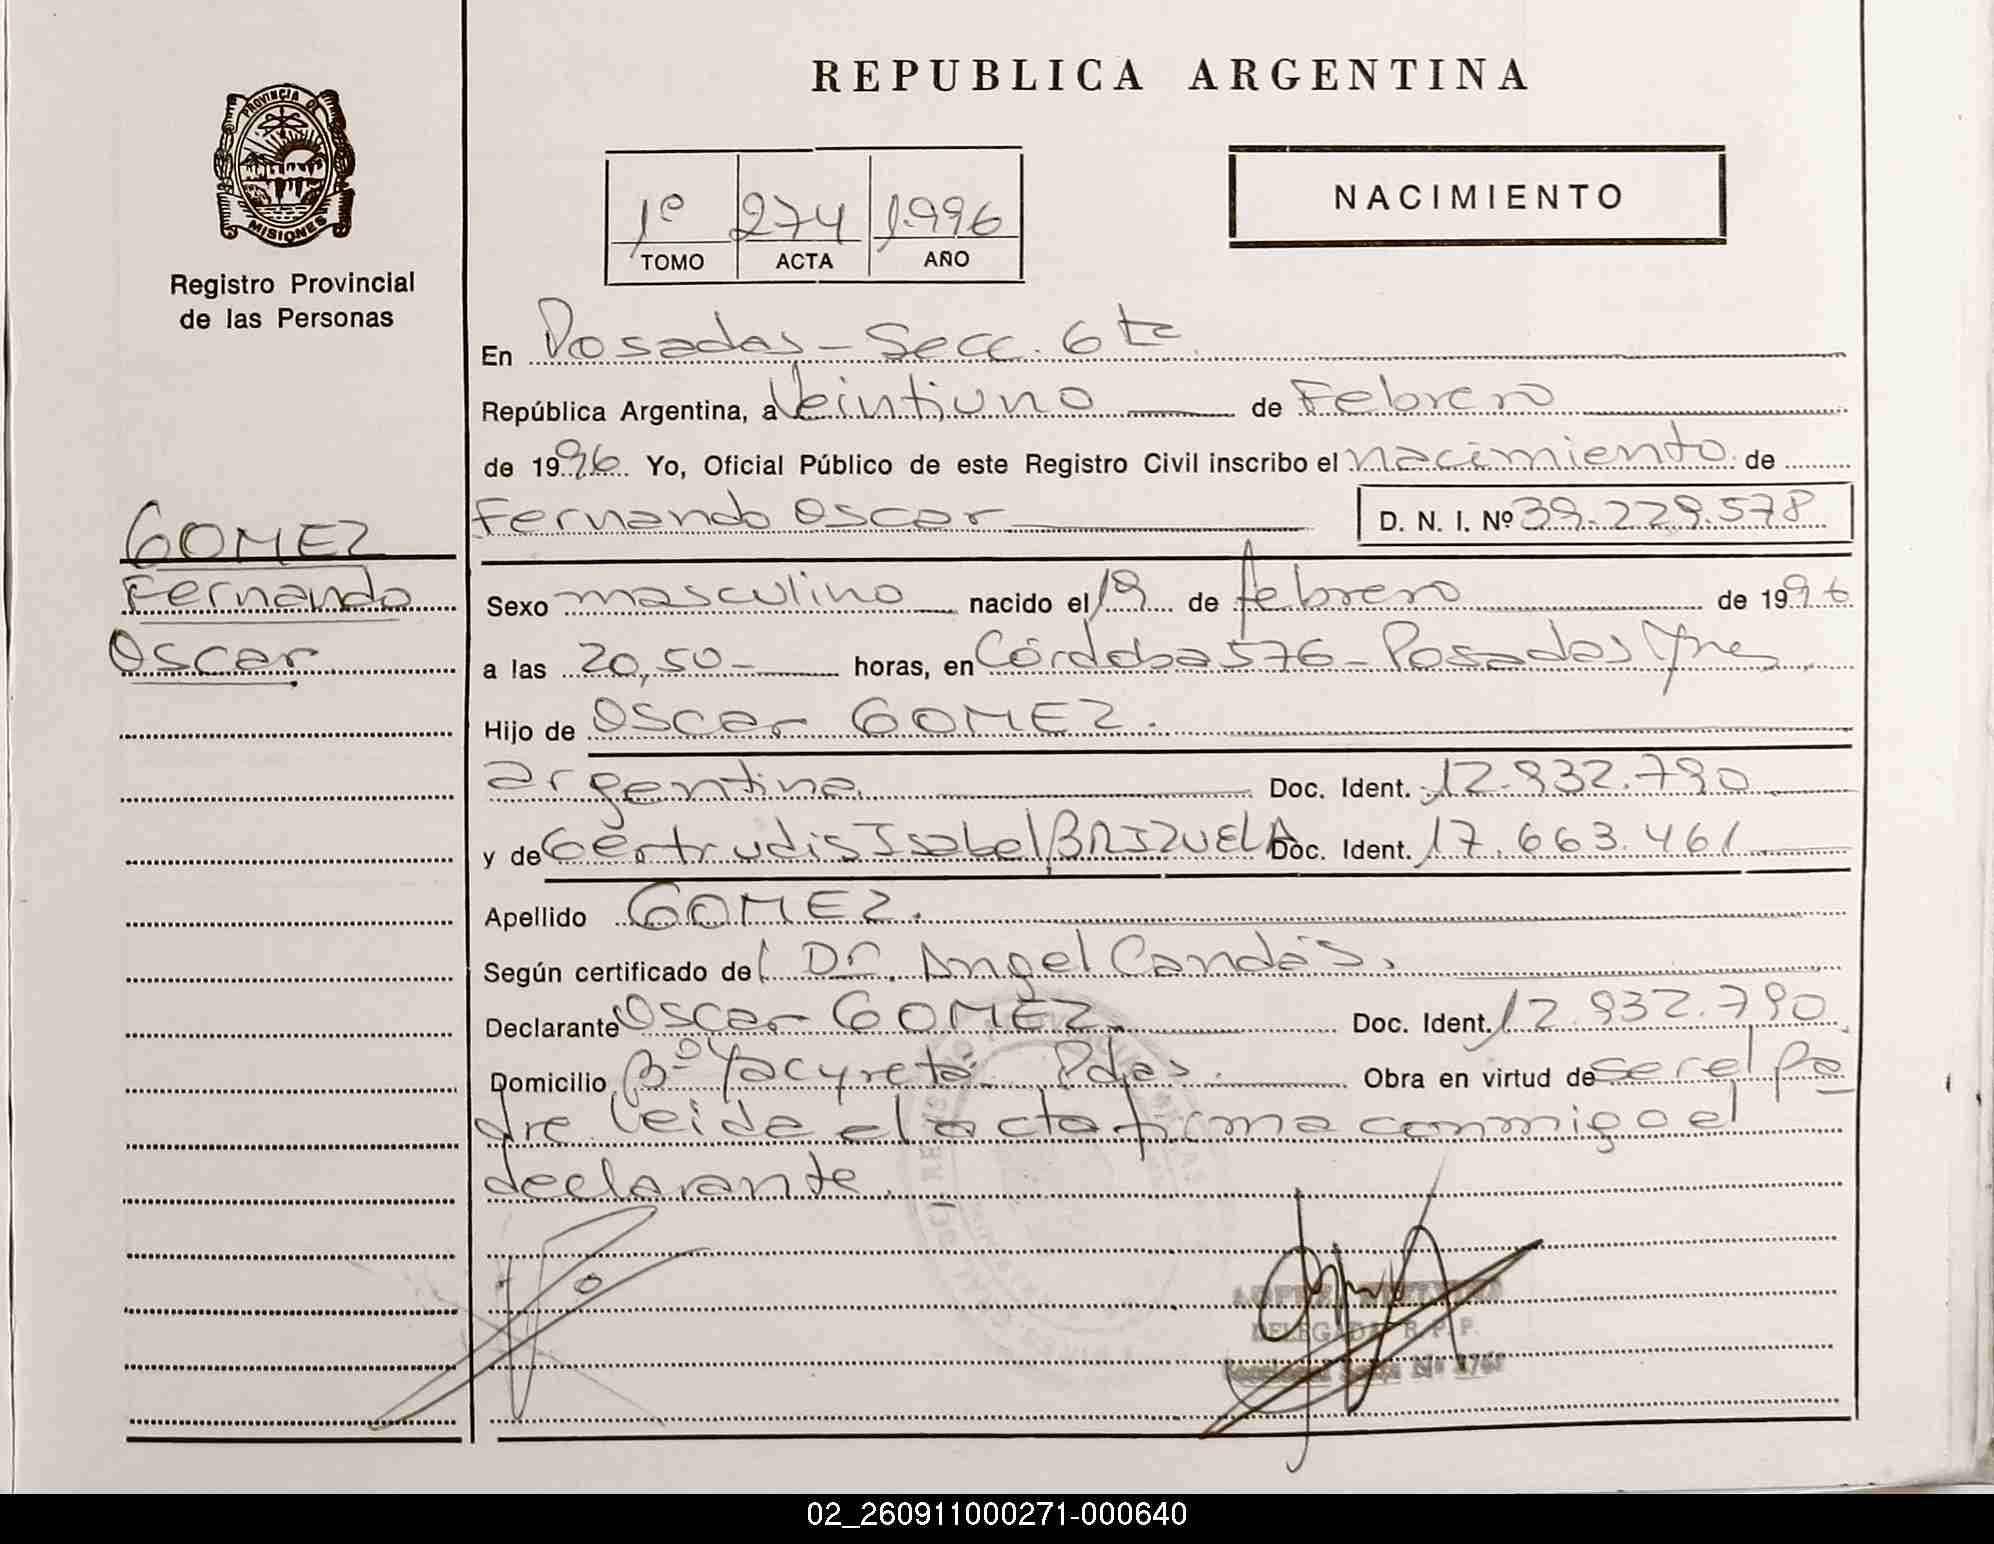 REPUBLICA ARGENTINA
PROVINCIA DE
MISIONES
Registro Provincial
de las Personas
1º 274 1996
TOMO ACTA AÑO
NACIMIENTO
En Posadas - Secc. 6ta
República Argentina, a Veintiuno de Febrero
de 1996 Yo, Oficial Público de este Registro Civil inscribo el nacimiento de
Fernando Oscar D. N. I. Nº 39.229.578
GOMEZ
Fernando
Oscar
Sexo masculino nacido el 19 de febrero de 1996
a las 20,50- horas, en Córdoba 576 - Posadas Mnes
Hijo de Oscar GOMEZ.
argentina Doc. Ident. 12.932.790
y de Gertrudis Isabel BRIZUELA Doc. Ident. 17.663.461
Apellido GOMEZ.
Según certificado del Dr. Angel Candás.
Declarante Oscar GOMEZ Doc. Ident. 12.932.790
Domicilio Bº Yacyretá Pdas. Obra en virtud de ser el pa
dre leida el acta firma conmigo el
declarante.
DELEGADA R.P.P.
02_260911000271-000640